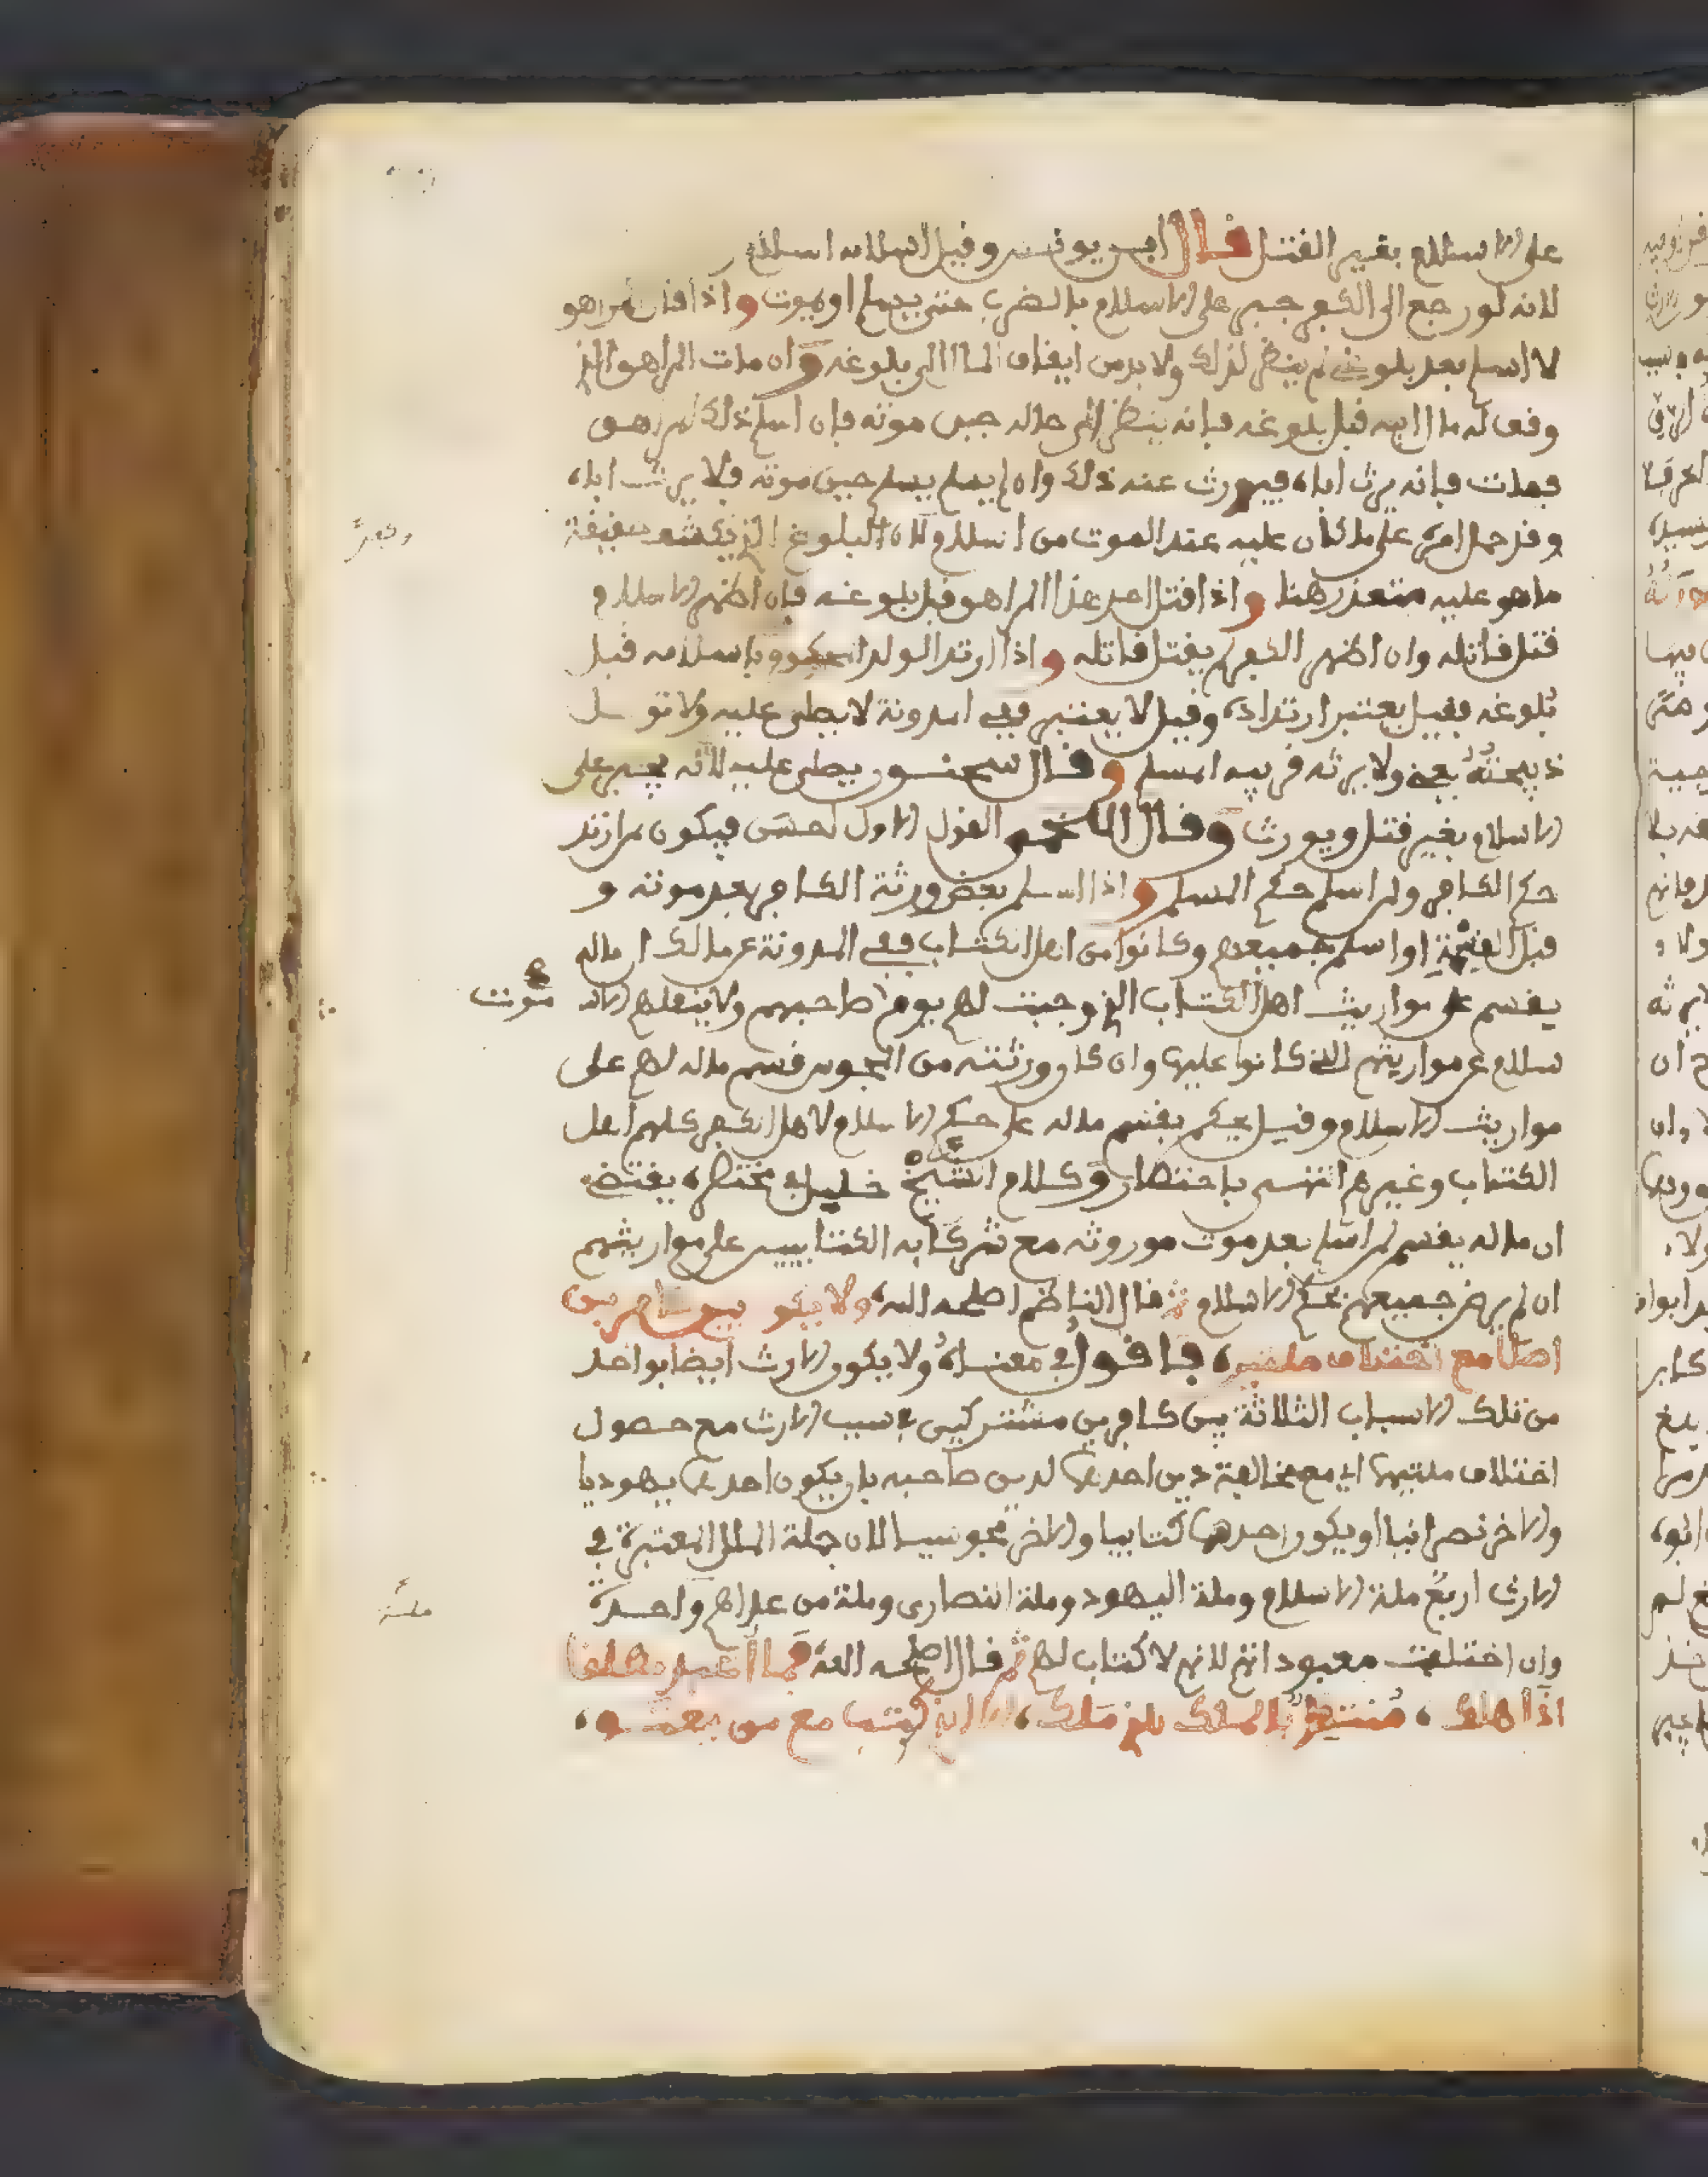 على الاسلام بغير القتل قال ابن يونس وقيل اسلامه اسلام
لانه لو رجع الى الكفر جبر على الاسلام بالضرب حتى يسلم او يموت واذا قال المراهق
لا اسلم بعد بلوغي لم ينظر لذلك ولا بد من ايقاف المال الى بلوغه وان مات المراهق الذي
وقف له مال ابيه قبل بلوغه فانه ينظر الى حاله حين موته فان اسلم ذلك المراهق
فمات فانه يرث اباه فيورث عنه ذلك وان لم يسلم حين موته فلا يرث اباه
وقد حمل امره على ما كان عليه عند الموت من اسلام لان البلوغ الذي يكشف حقيقة
وكفر
ما هو عليه متعذر هنا واذا قتل احد هذا المراهق قبل بلوغه فان اظهر الاسلام
قتل قاتله وان اظهر الكفر لم يقتل قاتله واذا ارتد الولد المحكوم باسلامه قبل
بلوغه فقيل يعتبر ارتداده وقيل لا يعتبر ففي المدونة لا يصلى عليه ولا توكل
ذبيحته يعني ولا يرثه قريبه المسلم وقال سحنون يصلى عليه لانه يجبر على
الاسلام بغير قتل ويورث وقال اللخمي القول الاول احسن فيكون لمن ارتد
حكم الكافر ولمن اسلم حكم المسلم واذا اسلم بعض ورثة الكافر بعد موته و
قبل القسمة او اسلم جميعهم وكانوا من اهل الكتاب ففي المدونة عن مالك ان ماله
يقسم على مواريث اهل الكتاب الذي وجبت لهم يوم صاحبهم ولا ينقلهم الا
موت
سلام عن مواريثهم التي كانوا عليها وان كان ورثته من المجوس قسم ماله لهم على
مواريث الاسلام وقيل يحكم بقسم ماله على حكم الاسلام لاهل الكفر كلهم اهل
الكتاب وغيرهم انتهى باختصار وكلام الشيخ خليل في مختصره يقتضي
ان ماله يقسم لمن اسلم بعد موت موروثه مع شركائه الكتابيين على مواريثهم
ان لم يرض جميعهم بحكم الاسلام ثم قال الناظم اصلحه الله ولا يكون بين كافرين
اصلا مع اختلاف ملتين، فاقول في معناه ولا يكون الارث ايضا بواحد
من تلك الاسباب الثلاثة بين كافرين مشتركين في سبب الارث مع حصول
اختلاف ملتيهما اي مع مخالفة دين احدهما لدين صاحبه بان يكون احدهما يهوديا
والاخر نصرانيا او يكون احدهما كتابيا والاخر مجوسيا لان جملة الملل المعتبرة في
الارث اربع ملة الاسلام وملة اليهود وملة النصارى وملة من عداهم واحدة
ملة
وان اختلفت معبوداتهم لانهم لا كتاب لهم ثم قال اصلحه الله
اذا هلك ،